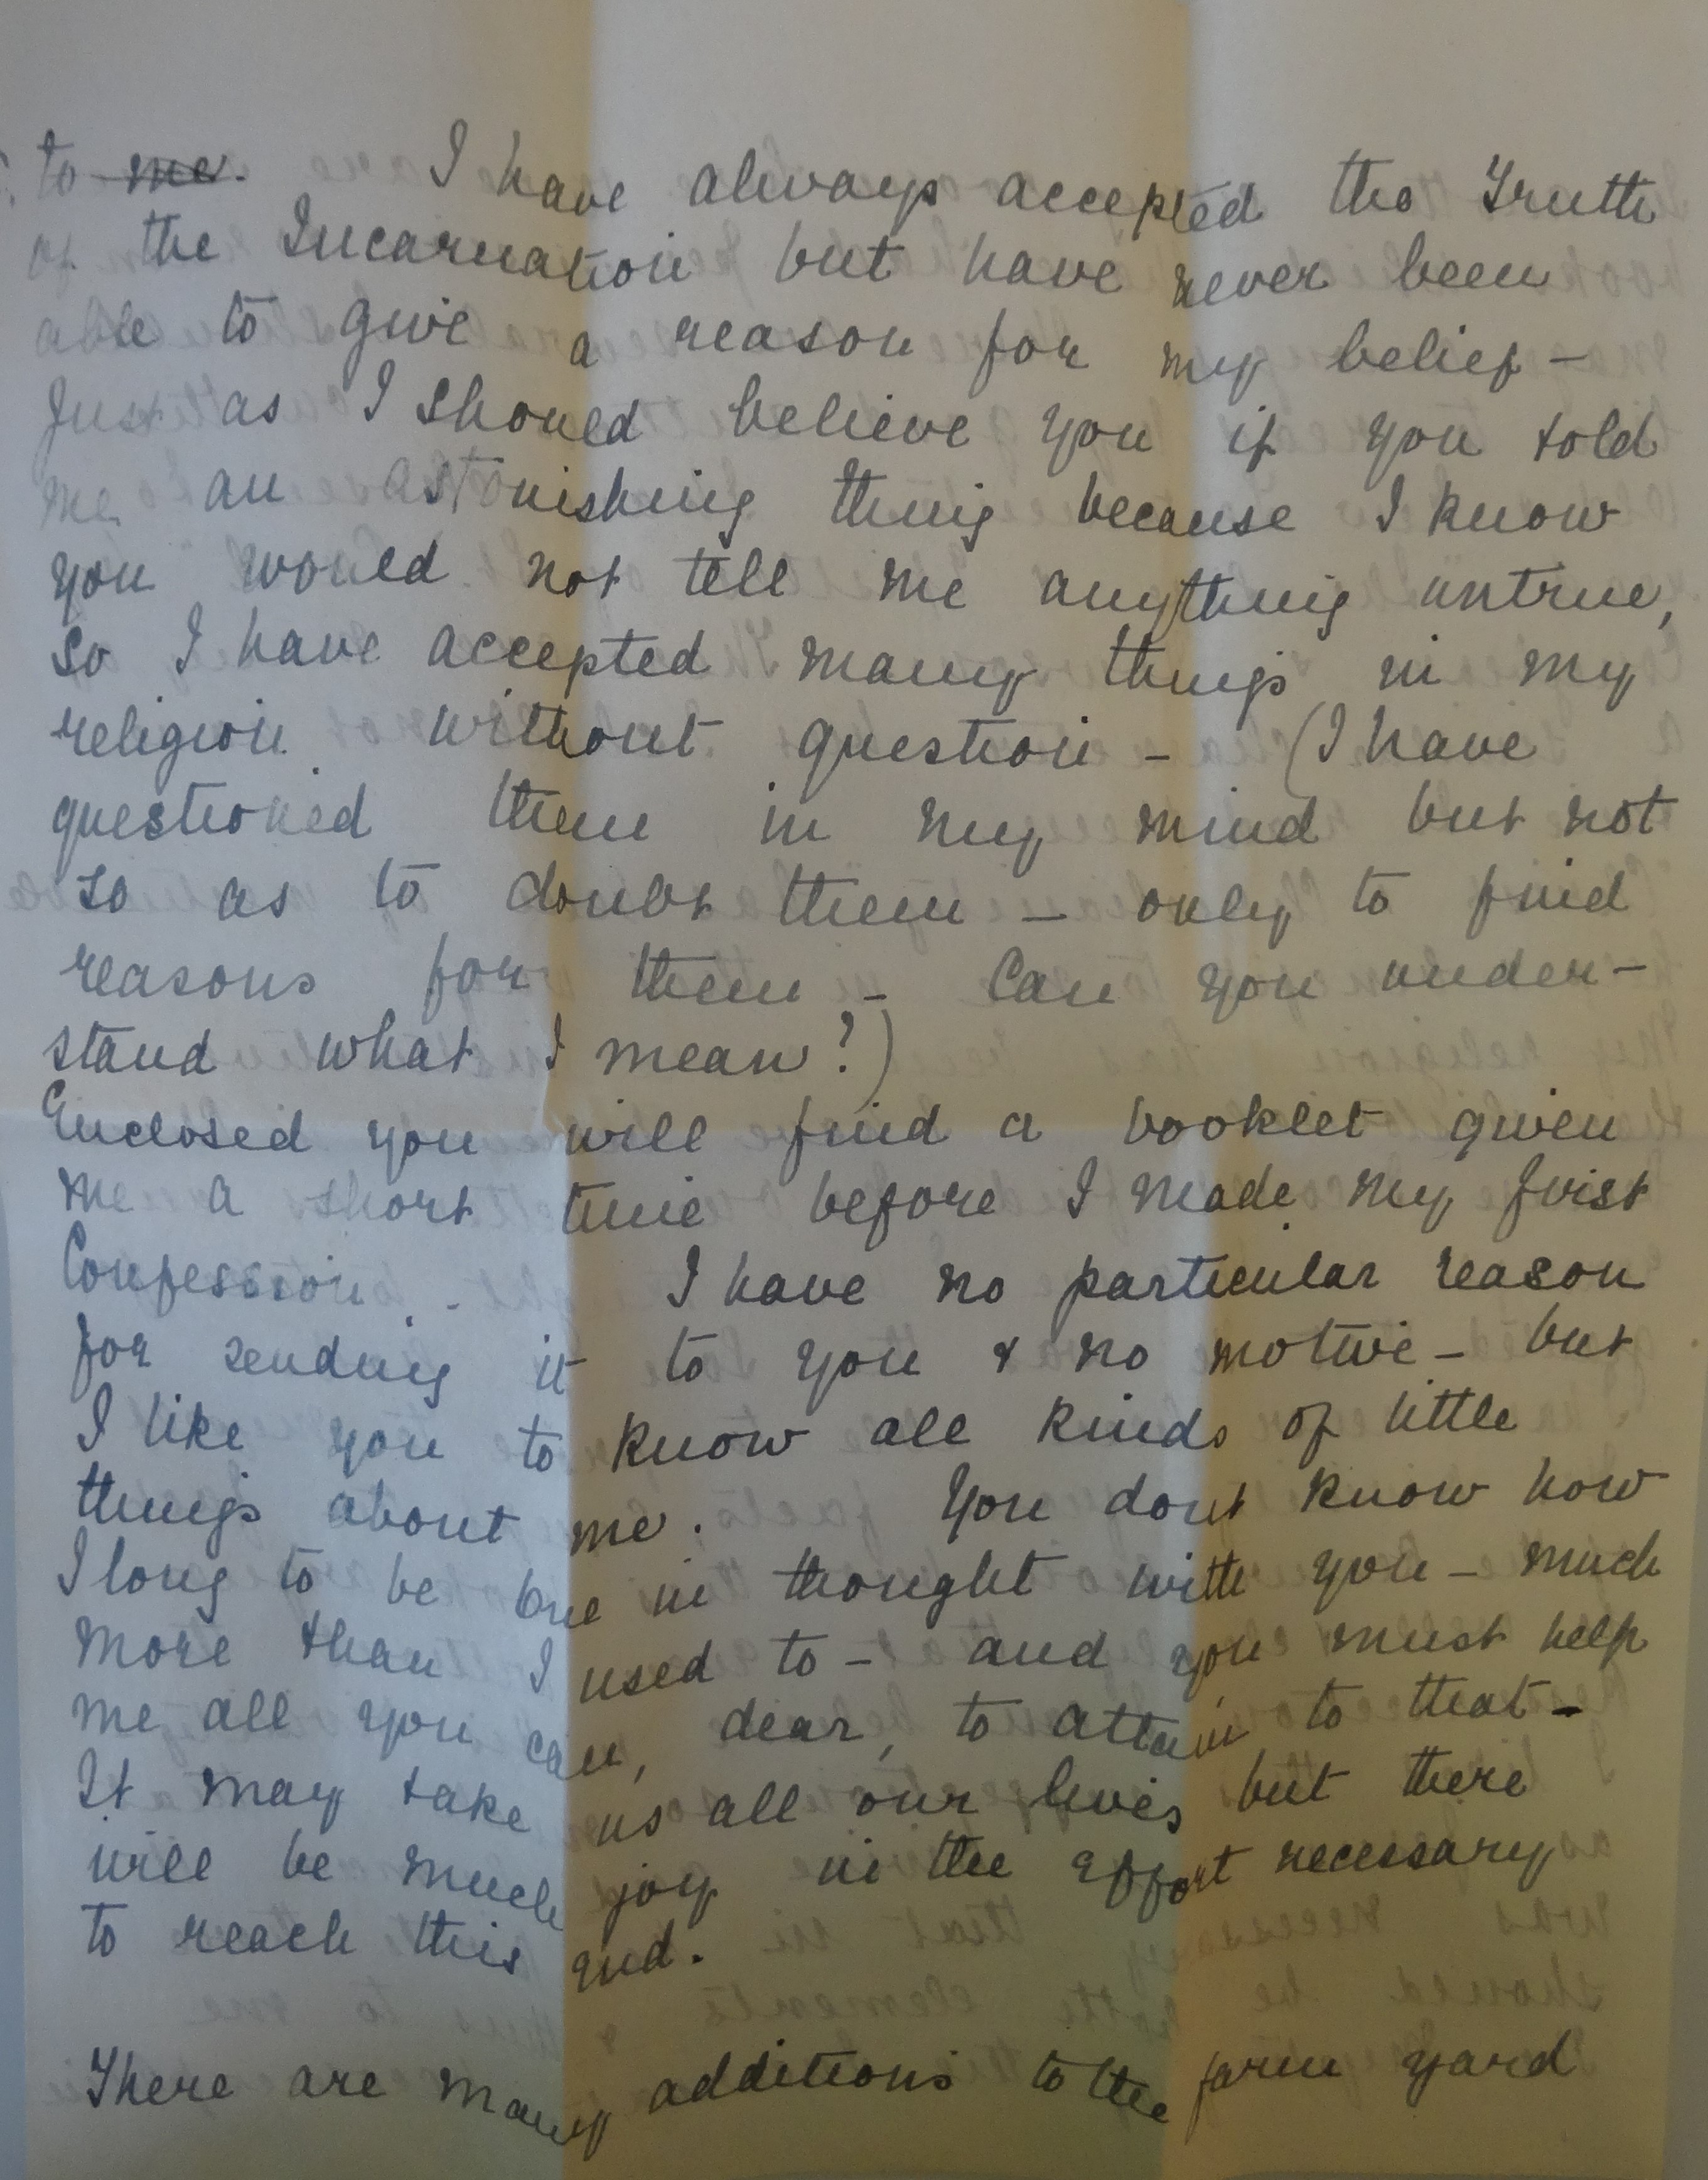 to me. I have always accepted the Truth
of the Incarnation but have never been
able to give a reason for my belief –
Just as I should believe you if you told
me an astonishing thing because I know
you would not tell me anything untrue,
so I have accepted many things in my
religion without question – (I have
questioned them in my mind but not
so as to doubt them – only to find
reasons for them – Can you under-
stand what I mean?)
Enclosed you will find a booklet given
me a short time before I made my first
Confession. I have no particular reason
for sending it to you & no motive – but
I like you to know all kinds of little
things about me. You dont know how
I long to be one in thought with you – much
more than I used to – and you must help
me all you can, dear, to attain to that –
It may take us all our lives but there
will be much joy in the effort necessary
to reach this end.
There are many additions to the farm yard